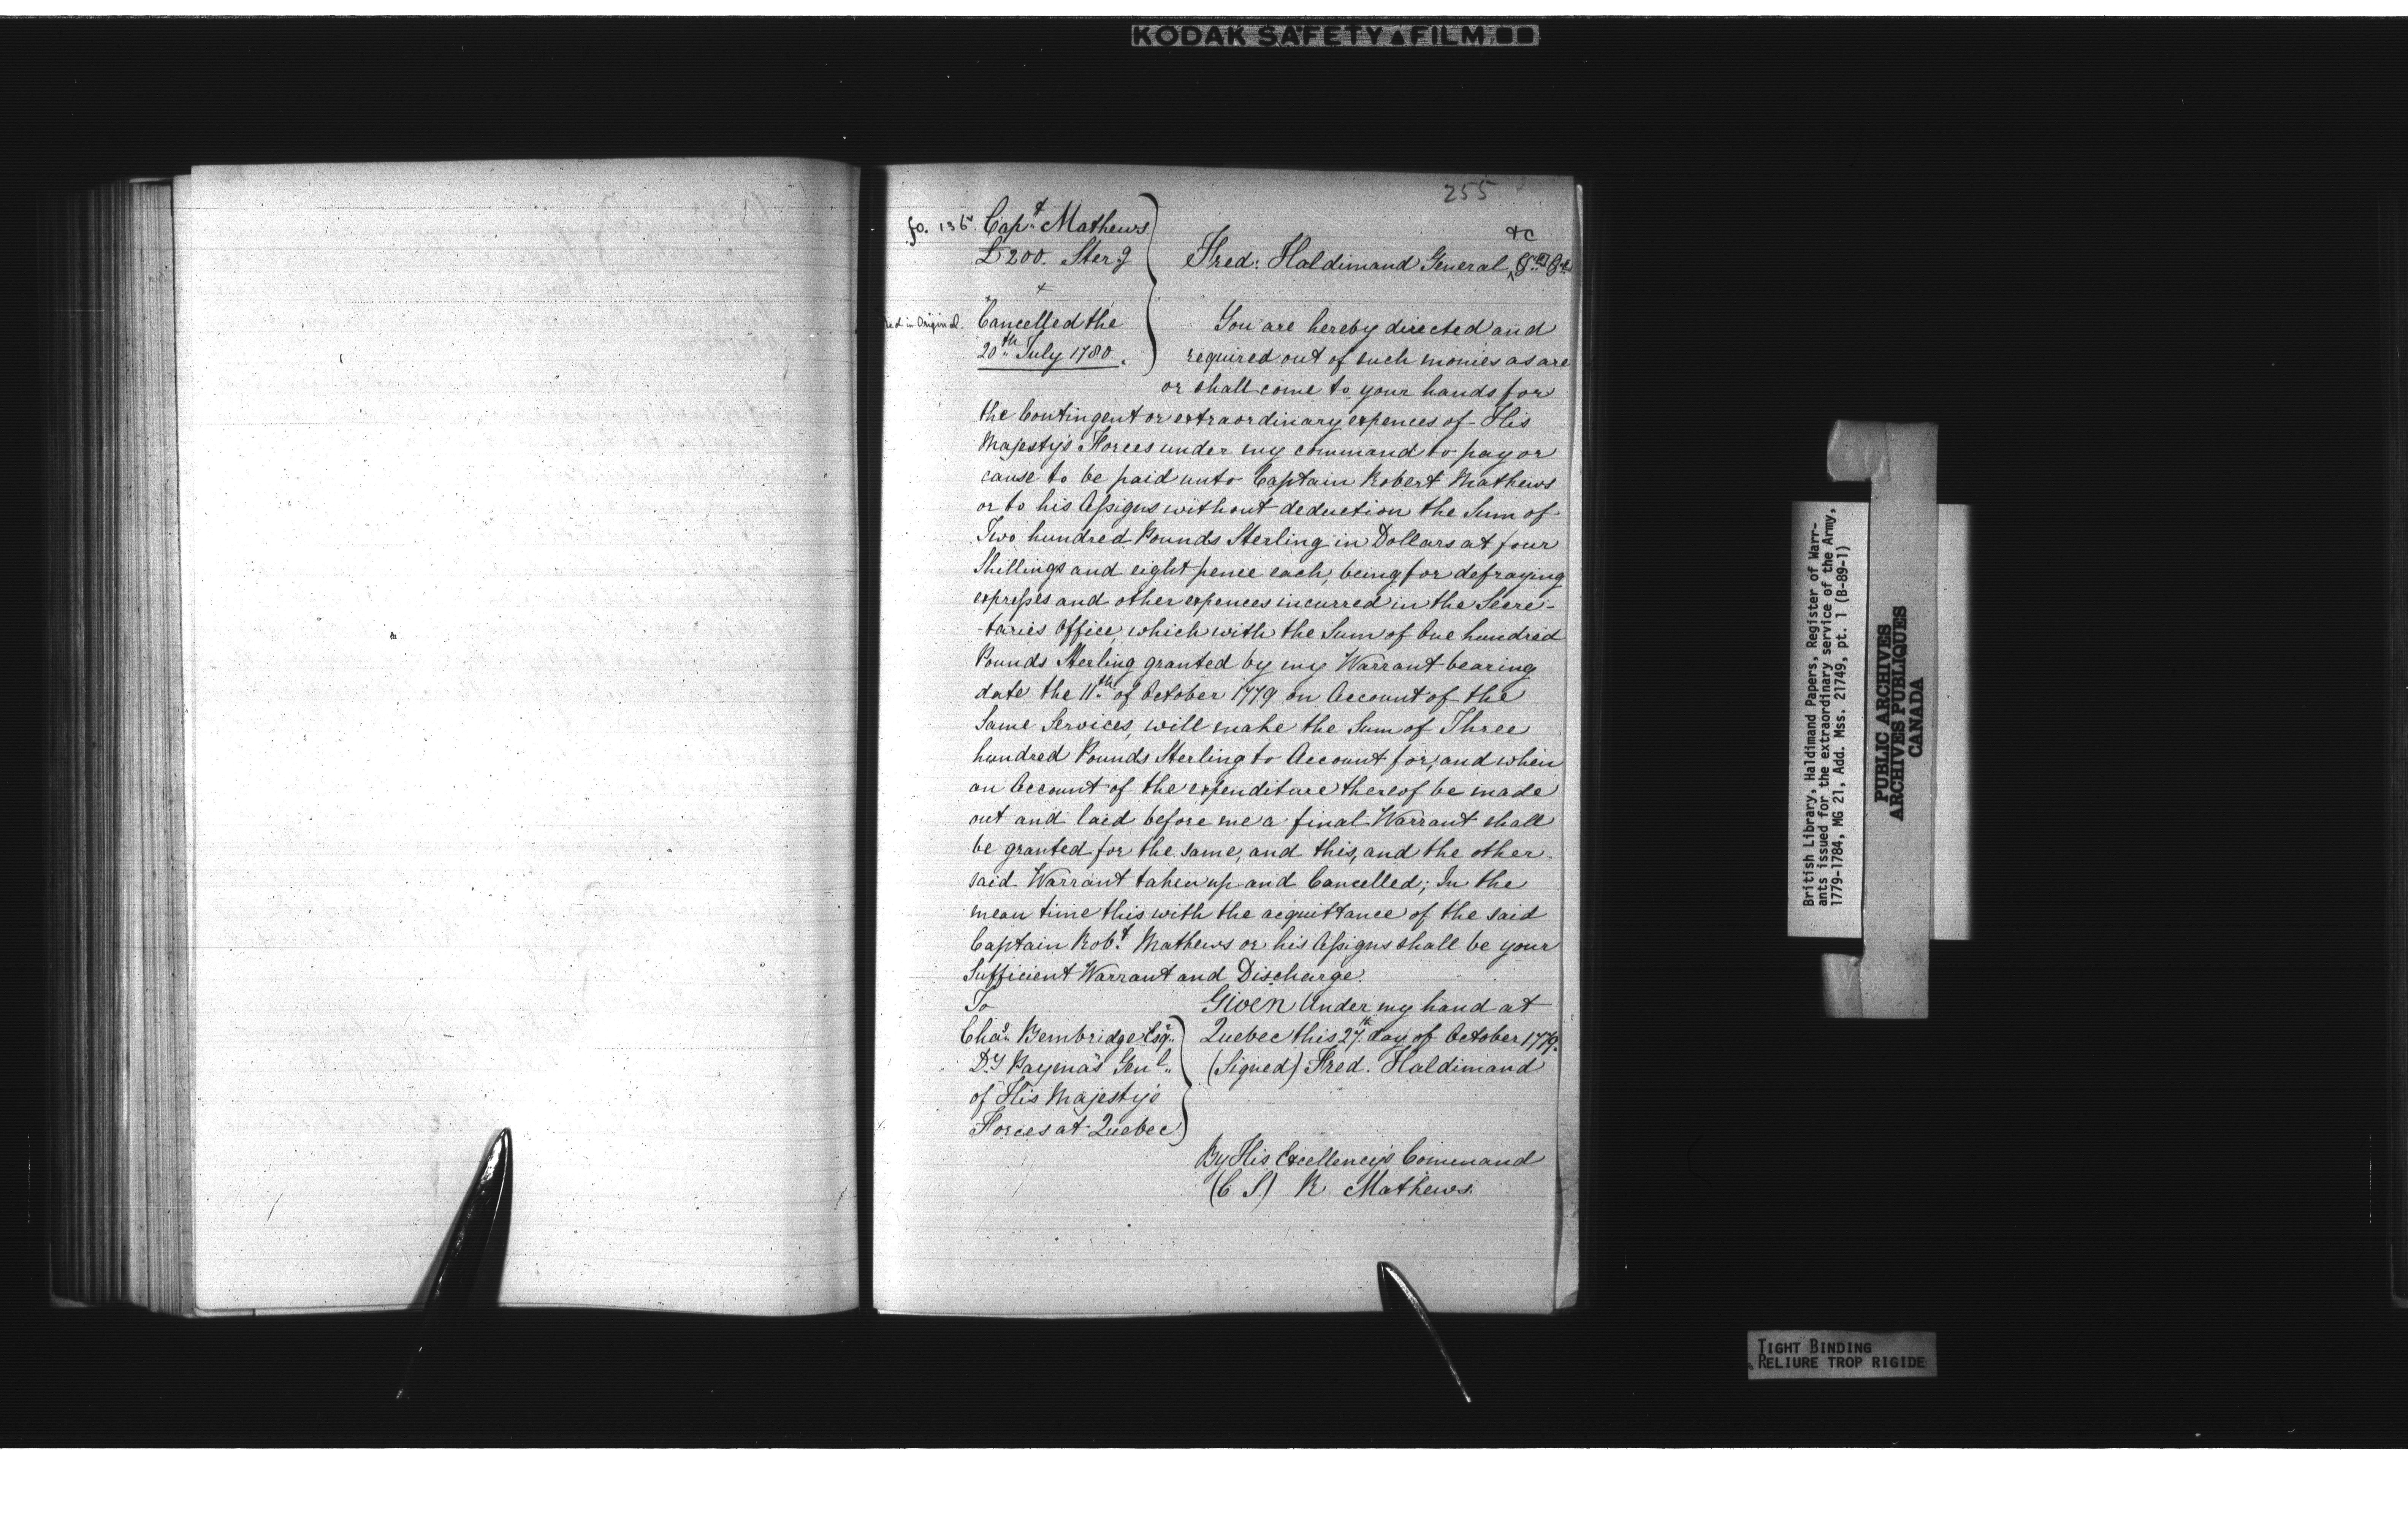 KODAK SAFETY FILM
255
fo. 136. Capt. Mathews
£200. Sterg
Fred: Haldimand General &c
Cancelled the
20th July 1780.
Red in Original.
You are hereby directed and
required out of such monies as are
or shall come to your hands for
the Contingent or extraordinary expences of His
Majesty's Forces under my command to pay or
cause to be paid unto Captain Robert Mathews
or to his Assigns without deduction the Sum of
Two hundred Pounds Sterling in Dollars at four
Shillings and eight pence each, being for defraying
expresses and other expences incurred in the Secre-
-taries Office, which with the Sum of One hundred
Pounds Sterling granted by my Warrant bearing
date the 11th of October 1779 on Account of the
Same Services, will make the Sum of Three
hundred Pounds Sterling to Account for, and when
an Account of the expenditure thereof be made
out and laid before me a final Warrant shall
be granted for the same, and this, and the other
said Warrant taken up and Cancelled; In the
mean time this with the acquittance of the said
Captain Robt. Mathews or his Assigns shall be your
Sufficient Warrant and Discharge.
To
Chas. Bembridge Esqr.
Dy. Paymas. Genl.
of His Majesty's
Forces at Quebec
Given Under my hand at
Quebec this 27th day of October 1779.
(Signed) Fred. Haldimand
By His Excellency's Command
(C. S.) R. Mathews.
British Library, Haldimand Papers, Register of Warr-
ants issued for the extraordinary service of the Army,
1779-1784, MG 21, Add. Mss. 21749, pt. 1 (B-89-1)
PUBLIC ARCHIVES
ARCHIVES PUBLIQUES
CANADA
TIGHT BINDING
RELIURE TROP RIGIDE